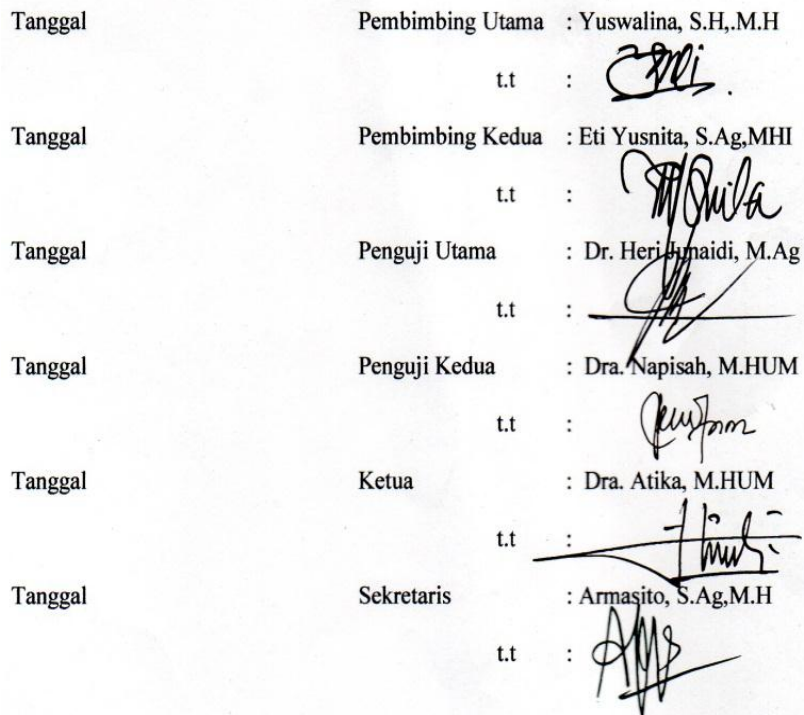 Tanggal Pembimbing Utama : Yuswalina, S.H,.M.H
t.t :
Tanggal Pembimbing Kedua : Eti Yusnita, S.Ag,MHI
t.t :
Tanggal Penguji Utama : Dr. Heri Junaidi, M.Ag
t.t :
Tanggal Penguji Kedua : Dra. Napisah, M.HUM
t.t :
Tanggal Ketua : Dra. Atika, M.HUM
t.t :
Tanggal Sekretaris : Armasito, S.Ag,M.H
t.t :